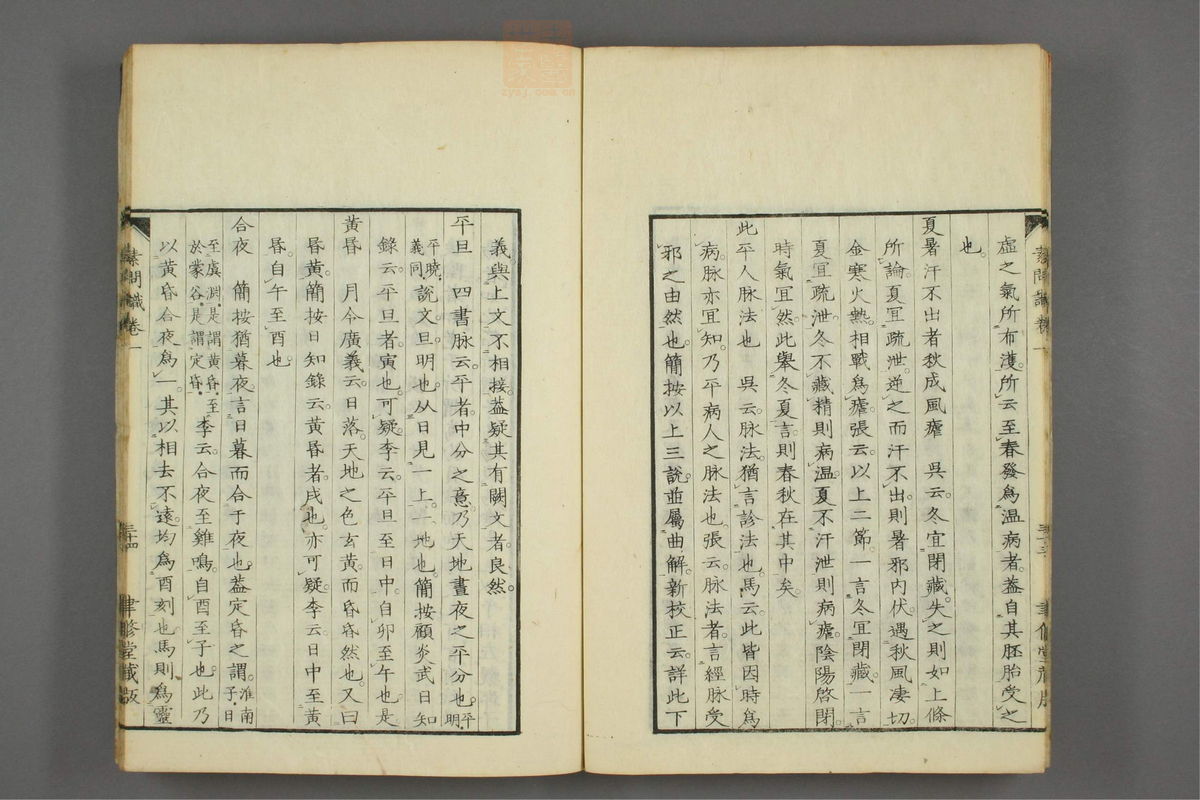 虛之氣所布濩所云至春發爲温病者葢自其胚胎受之
也
夏暑汗不出者秋成風瘧　吳云冬宜閉藏失之則如上條
所論夏宜疏泄逆之而汗不出則暑邪内伏遇秋風凄切
金寒火熱相戰爲瘧張云以上二節一言冬宜閉藏一言
夏宜疏泄冬不藏精則病温夏不汗泄則病瘧陰陽啓閉
時氣宜然此舉冬夏言則春秋在其中矣
此平人脉法也　吳云脉法猶言診法也馬云此皆因時爲
病脉亦宜知乃平病人之脉法也張云脉法者言經脉受
邪之由然也簡按以上三說並屬曲解新校正云詳此下
義與上文不相接葢疑其有闕文者良然
平旦　四書脉云平者中分之意乃天地晝夜之平分也平明
平曉義同說文旦明也从日見一上一地也簡按顧炎武日知
錄云平旦者寅也可疑李云平旦至日中自卯至午也是
黄昏　月令廣義云日落天地之色玄黄而昏昏然也又曰
昏黄簡按日知錄云黄昏者戌也亦可疑李云日中至黄
昏自午至酉也
合夜　簡按猶暮夜言日暮而合于夜也葢定昏之謂淮南子日
至虞淵是謂黄昏至於蒙谷是謂定昏李云合夜至雞鳴自酉至子也此乃
以黄昏合夜爲一其以相去不遠均爲酉刻也馬則爲靈
素問識卷一
三十四
聿修堂藏版